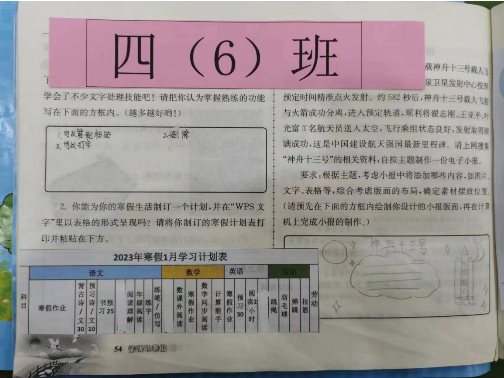 四（6）班
学会了不少文字处理技能吧！请把你认为掌握熟练的功能
写在下面的方框内。（越多越好哟！）
2. 你能为你的寒假生活制订一个计划，并在“WPS 文
字”里以表格的形式呈现吗？请将你制订的寒假计划表打
印并粘贴在下方。
2023年寒假1月学习计划表
语文 数学 英语
科目
寒假作业
背古诗/文30
预习诗/文10
书预习25
阅读理解
年级阅读
练字
练笔/仿写
数课外阅读
寒假作业
数学同步阅读
计算能手
寒假作业
预习30
跳绳
羽毛球
弹跳
拉筋
劳动
54
载神舟十三号载人飞
泉卫星发射中心按照
预定时间精准点火发射。约 582 秒后，神舟十三号载人飞船
与火箭成功分离，进入预定轨道，顺利将翟志刚、王亚平、叶
光富 3 名航天员送入太空，飞行乘组状态良好，发射取得圆
满成功，这是中国建设航天强国最新里程碑。请上网搜集
“神舟十三号”的相关资料，自拟主题制作一份电子小报。
要求：根据主题，考虑小报中将添加哪些内容，如图片、
文字、表格等，综合考虑版面的布局，确定素材摆放位置。
（请预先在下面的方框内绘制你设计的小报版面，再在计算
机上完成小报的制作。）
神舟十三号